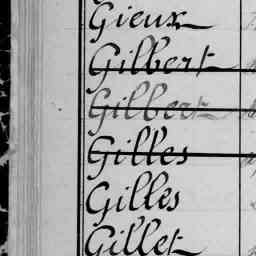 Gieux
Gilbert
Gilbert
Gilles
Gilles
Gillet